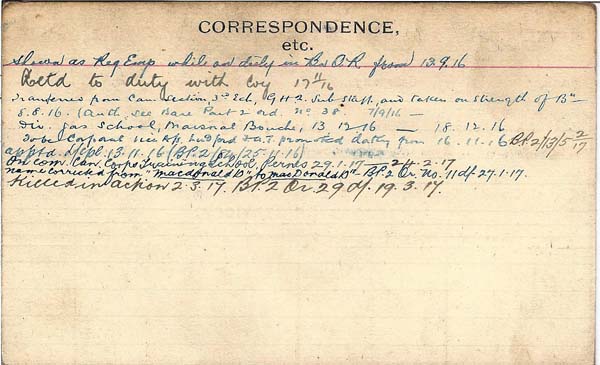 CORRESPONDENCE,
etc.
Shewn as Reg Emp while on duty in Bn O.R. from 13.9.16
Retd to duty with Coy 17 11/16
Transferred from Can. Section, 3rd Ech, GHQ Sub staff, and taken on strength of Bn
8.8.16. (Auth see Base Part 2 ord. No 38. 7/9/16 —
Div. Gas School, 13 12 16 — 18.12.16
Corporal vice promoted dating from 16.11.16 BP.2/13/5 2/17
apptd. 13.11.16 (BP.2/ 25.11.16)
On com. Can. Corps Training School, Pernes 29.1.17 — 24.2.17
name corrected from "Macdonald D" to MacDonald D" - BP.2 Or. No. 11 df 27.1.17.
Killed in action 2.3.17. BP.2 Or. 29 df. 19.3.17.